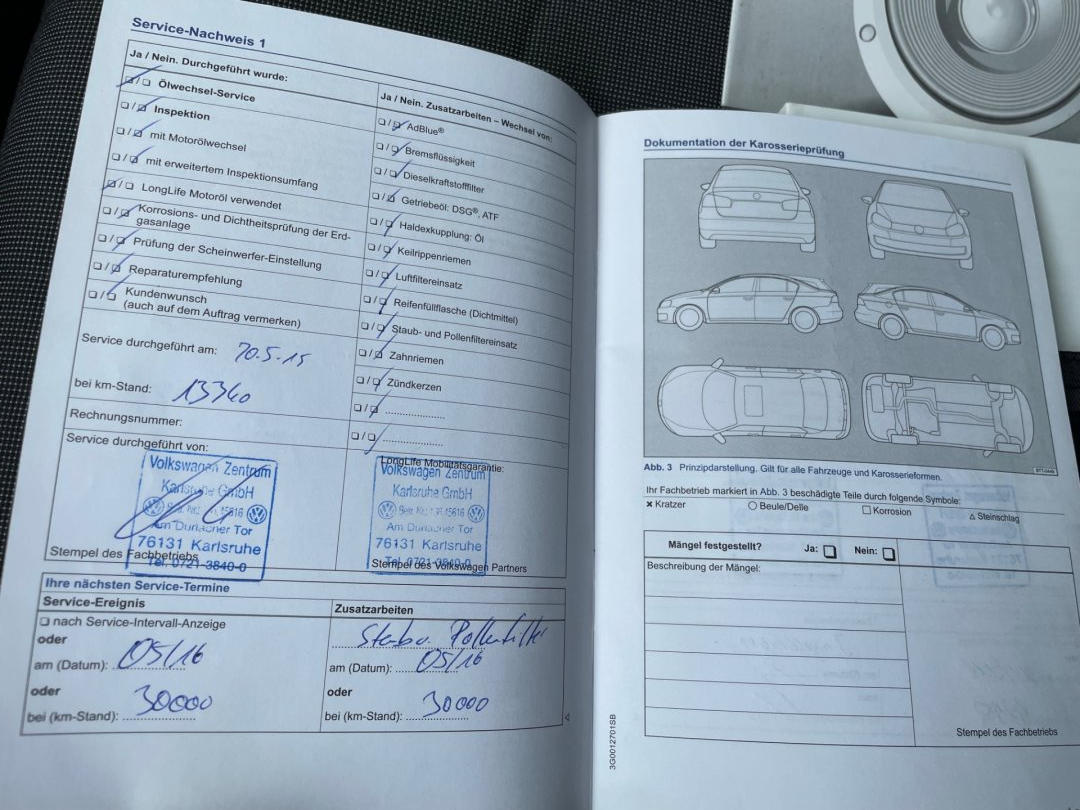 Service-Nachweis 1
Ja / Nein. Durchgeführt wurde:
Ölwechsel-Service
Inspektion
mit Motorölwechsel
mit erweitertem Inspektionsumfang
LongLife Motoröl verwendet
Korrosions- und Dichtheitsprüfung der Erd-
gasanlage
Prüfung der Scheinwerfer-Einstellung
Reparaturempfehlung
Kundenwunsch
(auch auf dem Auftrag vermerken)
Service durchgeführt am:
bei km-Stand: 13340
Rechnungsnummer:
Service durchgeführt von:
Volkswagen Zentrum
Karlsruhe GmbH
Am Durlacher Tor
76131 Karlsruhe
Tel. 0721-3840-0
Stempel des Fachbetriebs
Ja / Nein. Zusatzarbeiten – Wechsel von:
AdBlue®
Bremsflüssigkeit
Dieselkraftstofffilter
Getriebeöl: DSG®, ATF
Haldexkupplung: Öl
Keilrippenriemen
Luftfiltereinsatz
Reifenfüllflasche (Dichtmittel)
Staub- und Pollenfiltereinsatz
Zahnriemen
Zündkerzen
LongLife Mobilitätsgarantie:
Volkswagen Zentrum
Karlsruhe GmbH
Am Durlacher Tor
76131 Karlsruhe
Tel. 0721-3840-0
Stempel des Volkswagen Partners
Ihre nächsten Service-Termine
Service-Ereignis
nach Service-Intervall-Anzeige
oder
am (Datum): 05/16
oder
bei (km-Stand): 30000
Zusatzarbeiten
Pollenfilter
am (Datum): 05/16
oder
bei (km-Stand): 30000
3G0012701SB
Dokumentation der Karosserieprüfung
Abb. 3 Prinzipdarstellung. Gilt für alle Fahrzeuge und Karosserieformen.
Ihr Fachbetrieb markiert in Abb. 3 beschädigte Teile durch folgende Symbole:
× Kratzer ○ Beule/Delle □ Korrosion △ Steinschlag
Mängel festgestellt? Ja: Nein:
Beschreibung der Mängel:
Stempel des Fachbetriebs